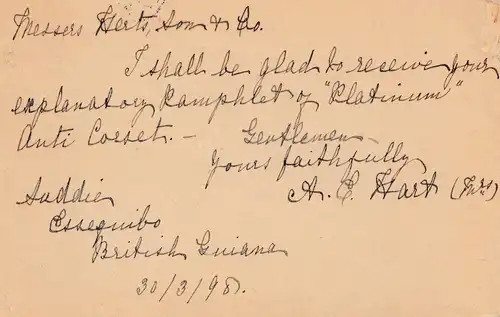 Messers Herts, Son & Co.
I shall be glad to receive your
explanatory Pamphlet of "Platinum"
Anti Corset. — Gentlemen
Yours faithfully
A. E. Hart (Mrs)
Suddie
Essequibo
British Guiana
30/3/98.